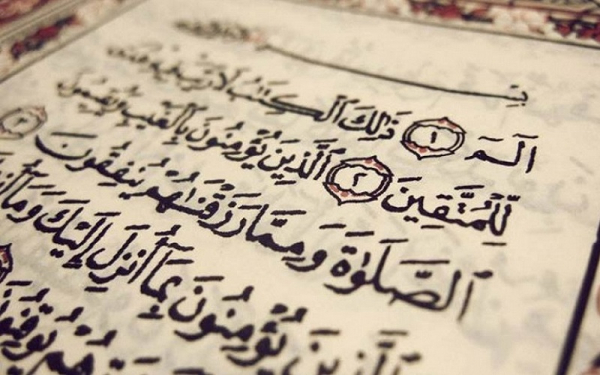 الٓمٓ ١ ذَٰلِكَ ٱلْكِتَٰبُ لَا رَيْبَ فِيهِ هُدًى
لِّلْمُتَّقِينَ ٢ ٱلَّذِينَ يُؤْمِنُونَ بِٱلْغَيْبِ وَيُقِيمُونَ
ٱلصَّلَوٰةَ وَمِمَّا رَزَقْنَٰهُمْ يُنفِقُونَ ٣
ٱلَّذِينَ يُؤْمِنُونَ بِمَآ أُنزِلَ إِلَيْكَ وَمَآ
هُمْ يُوقِنُونَ